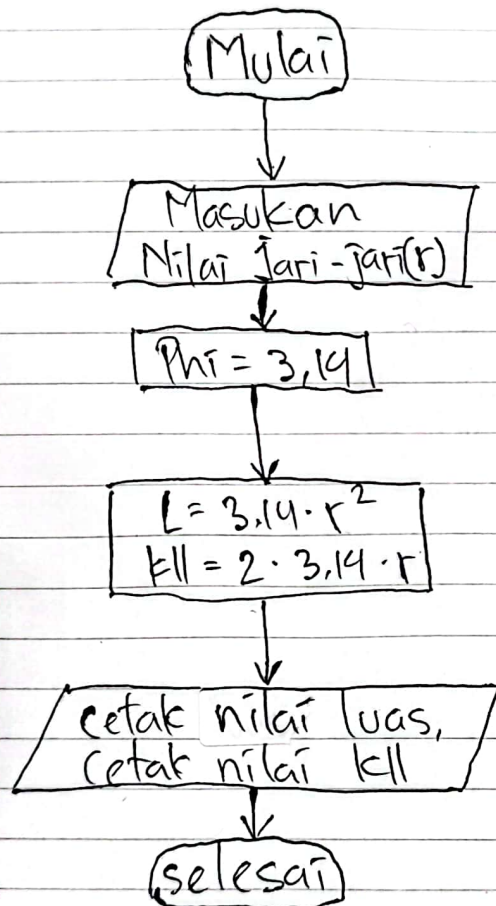 Mulai
Masukan
Nilai jari-jari(r)
Phi = 3,14
L = 3.14 · r²
kll = 2 · 3.14 · r
cetak nilai luas,
cetak nilai kll
selesai